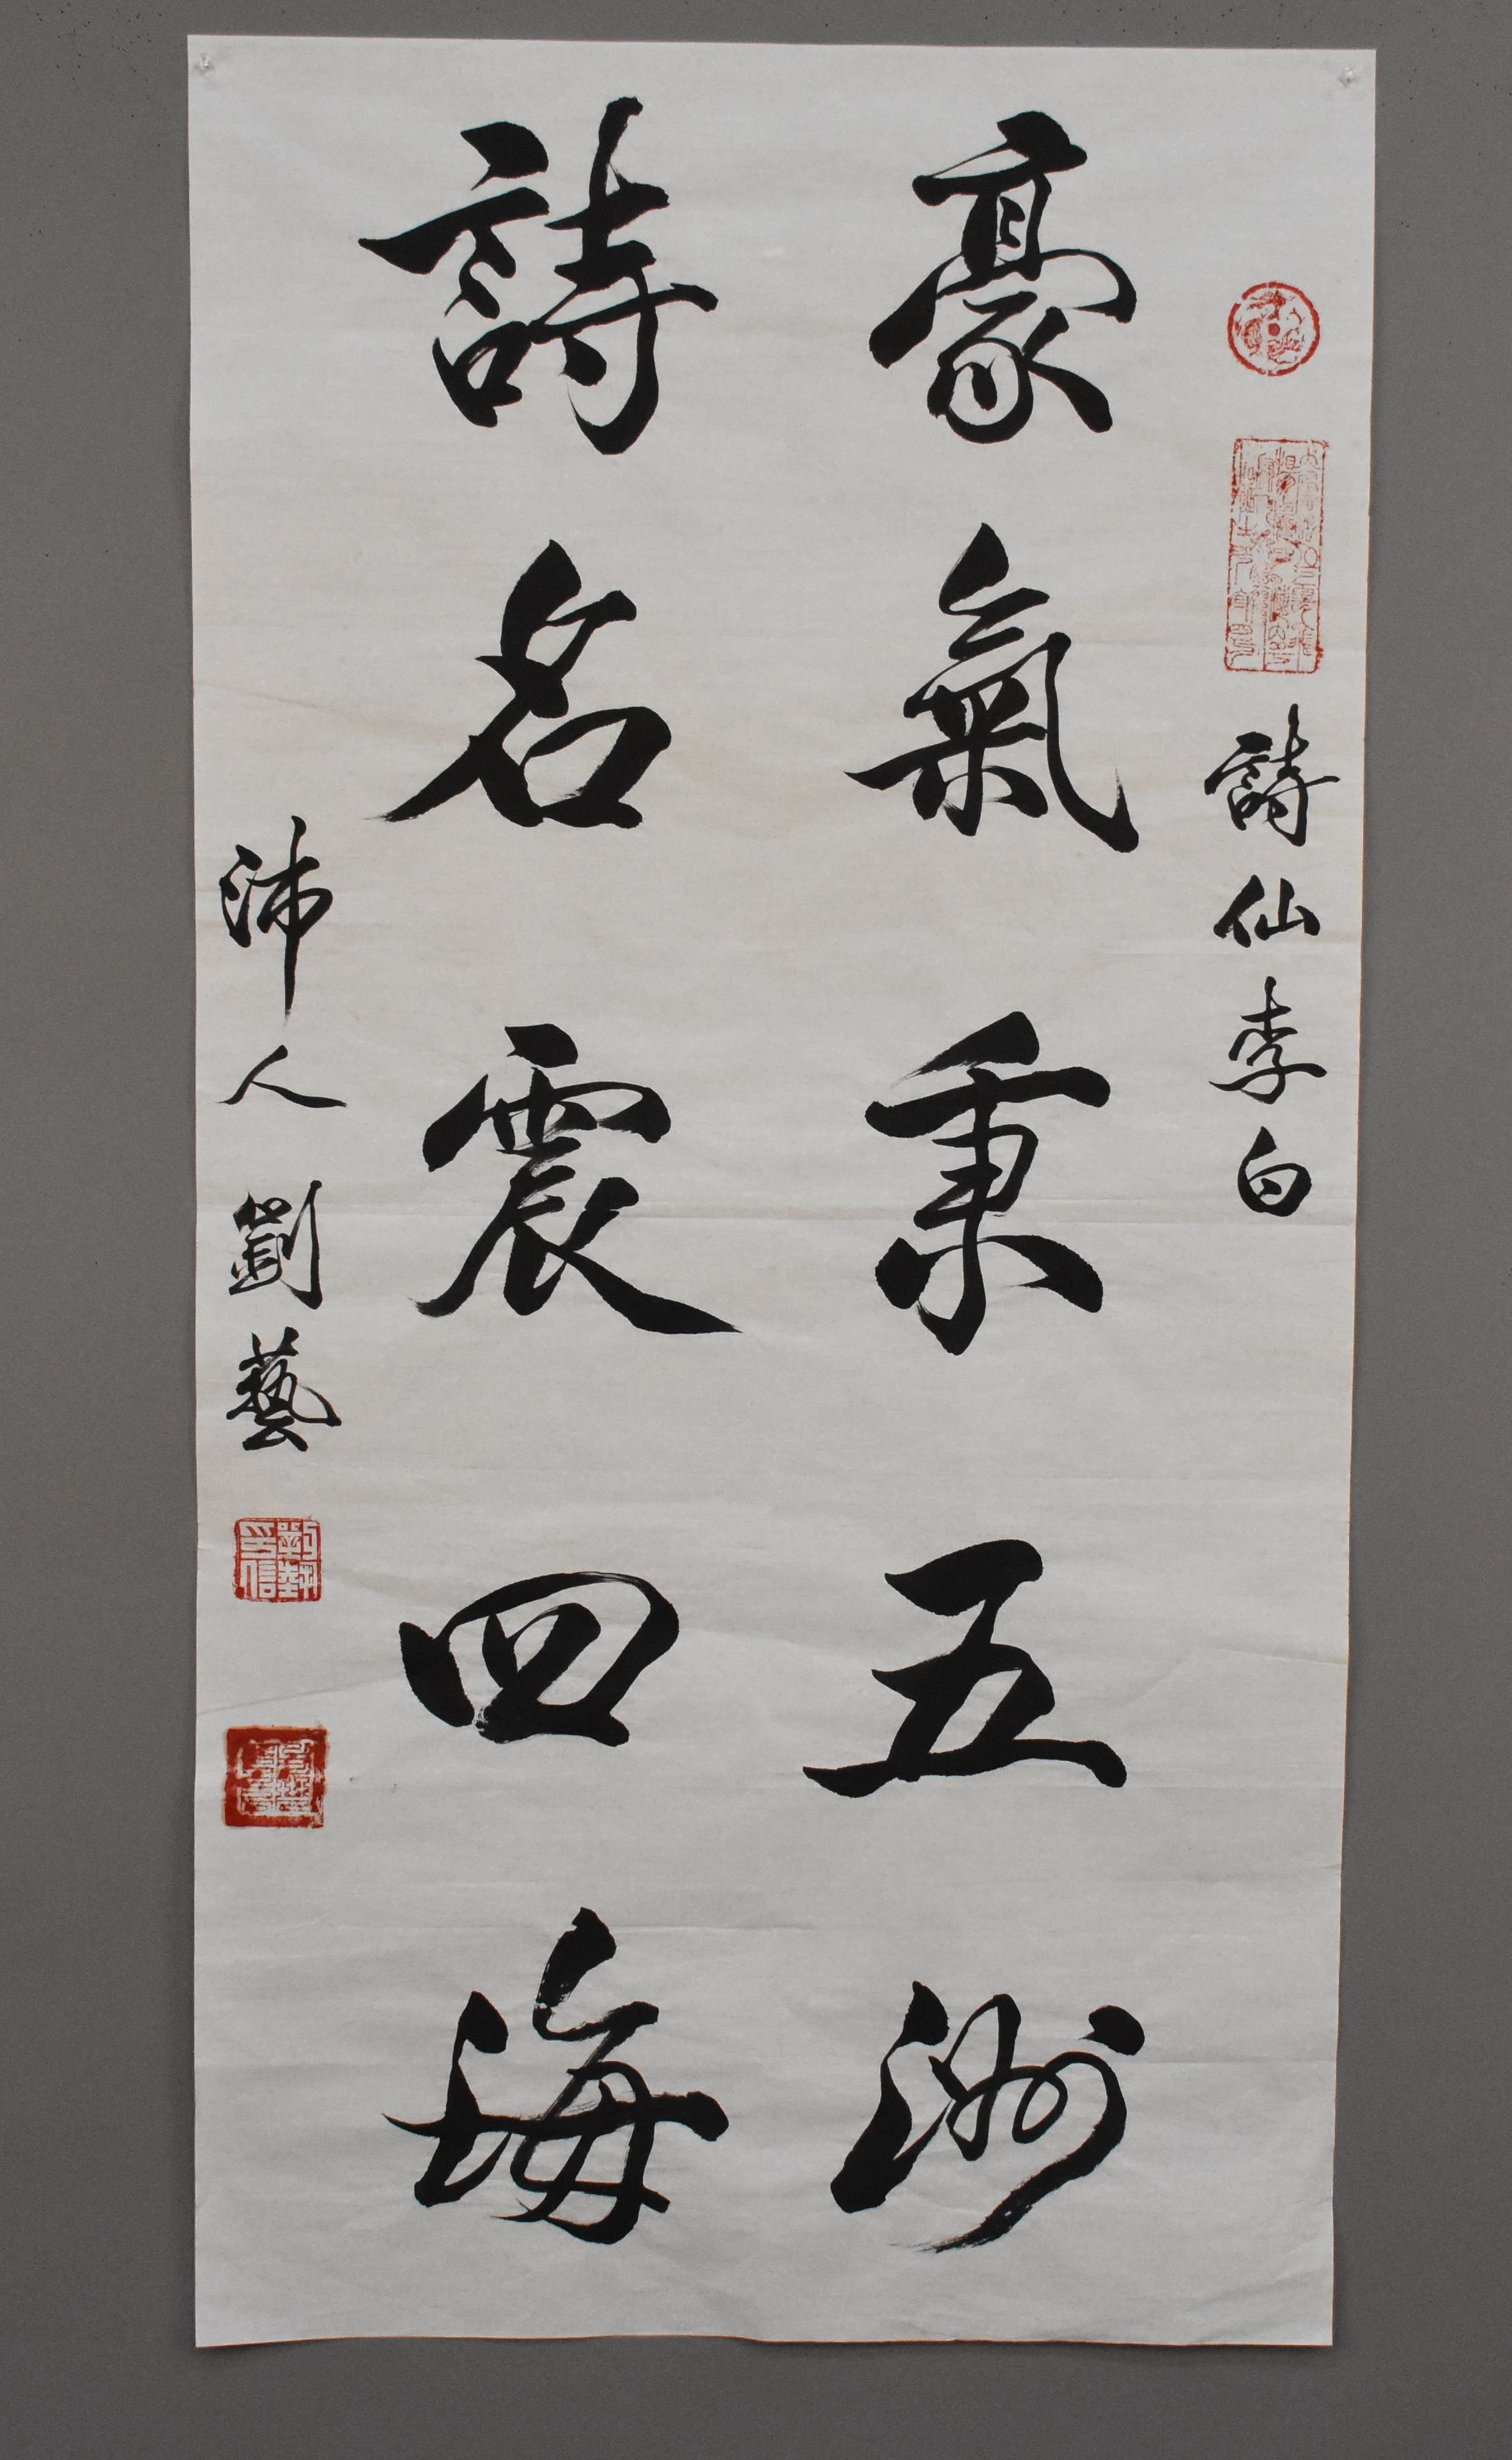 詩仙李白
豪氣秉五洲
詩名震四海
沛人劉藝
劉藝印信